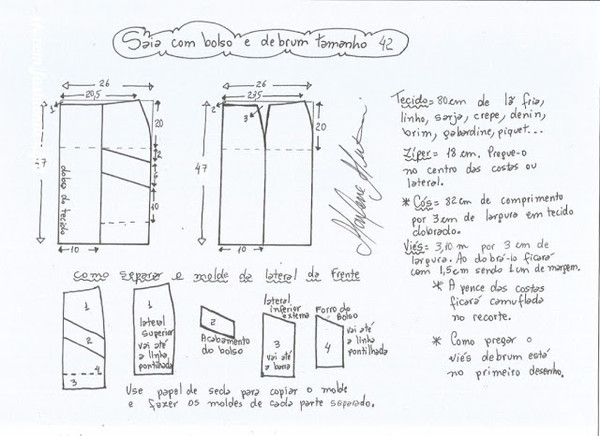 Saia com bolso e debrum tamanho 42
26
20,5
1
20
47
12
10
dobra do tecido
10
26
23,5
2
3
20
47
10
Marlene Mukai
Tecido = 80cm de lã fria,
linho, sarja, crepe, denin,
brim, gabardine, piquet...
Zíper = 18 cm. Pregue-o
no centro das costas ou
lateral.
* Cós = 82cm de comprimento
por 3cm de largura em tecido
dobrado.
Viés = 3,10 m por 3 cm de
largura. Ao dobrá-lo ficará
com 1,5cm sendo 1cm de margem.
* A pence das costas
ficará camuflada
no recorte.
* Como pregar o
viés debrum está
no primeiro desenho.
Como separar o molde da lateral da frente
1
2
4
3
1
lateral
superior
vai até
a linha
pontilhada
2
Acabamento
do bolso
lateral
inferior
externa
3
vai até
a barra
Forro do
bolso
4
vai até
a linha
pontilhada
Use papel de seda para copiar o molde
e fazer os moldes de cada parte separado.